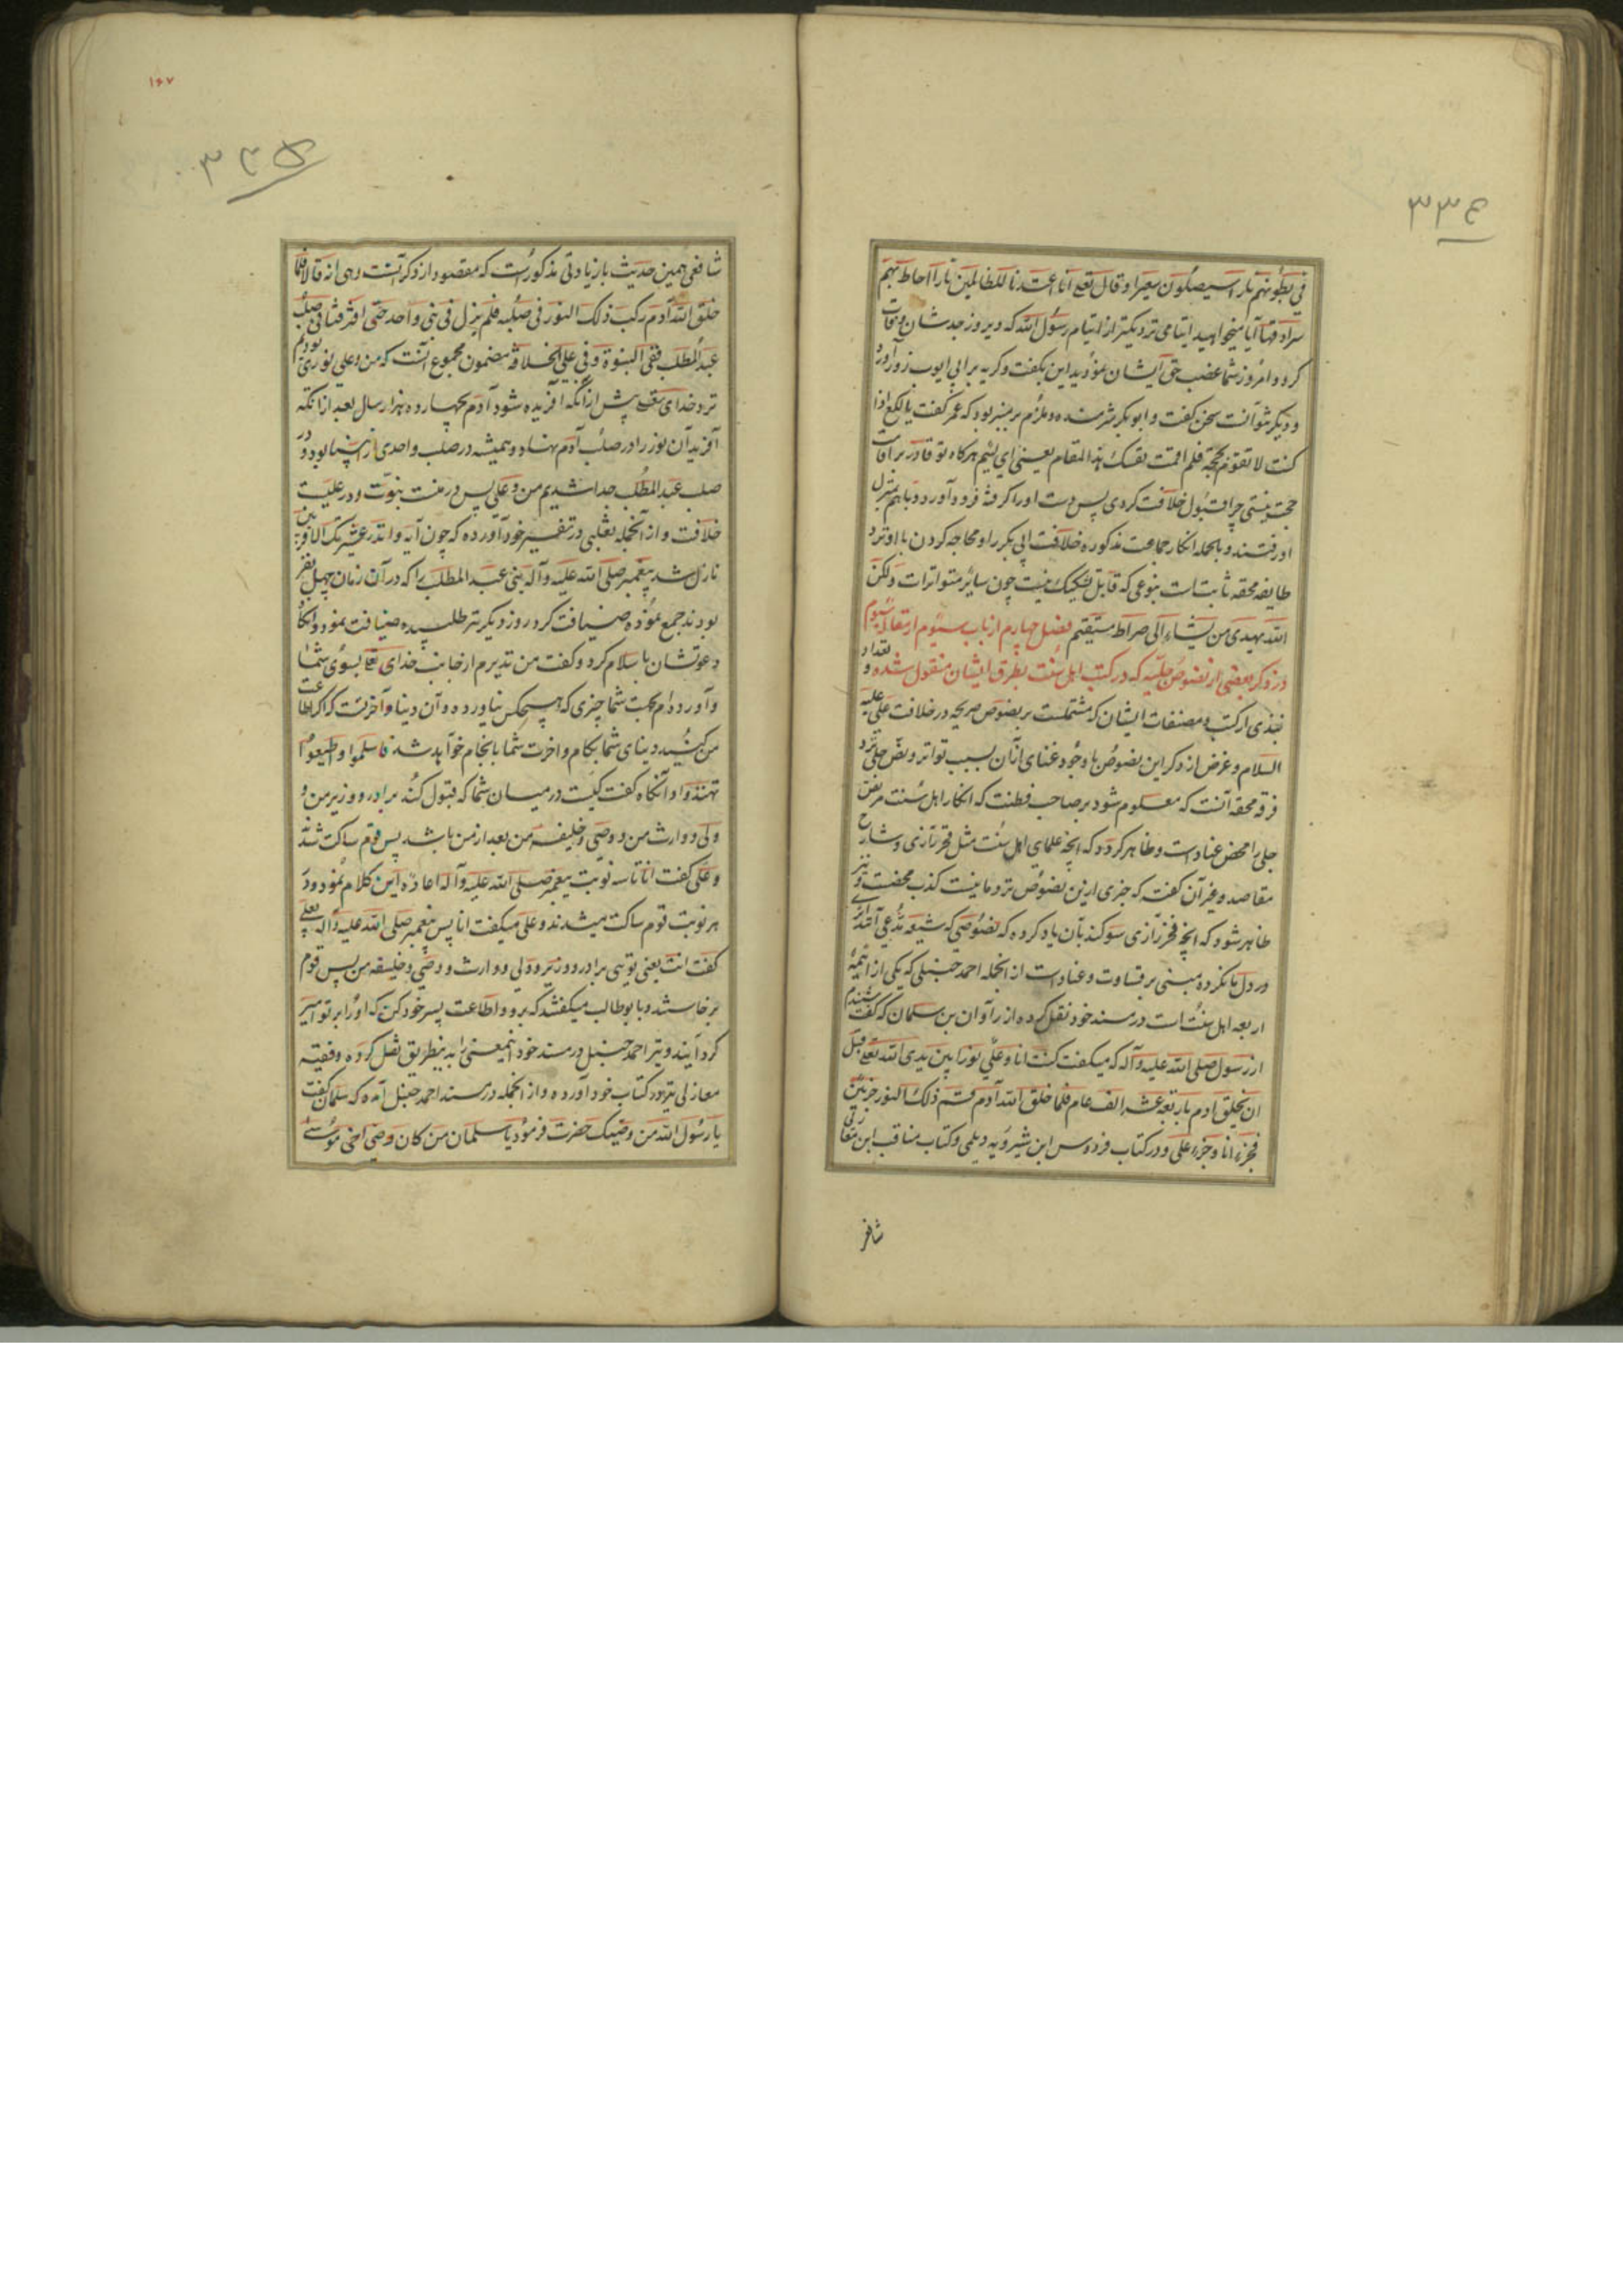 ۳۳۴
فی بطونهم نارا سیصلون سعیرا و قال تعالی انا اعتدنا للظالمین نارا احاط بهم
سرادقها آیا میخواهید ایتامی نزدیکتر از ایتام رسول الله که دیروز جدشان وفات
کرد و امروز شما غصب حق ایشان نمودید این بگفت و گریه بر ابی ایوب زور آورد
و دیگر نتوانست سخن گفت و ابوبکر شرمنده و ملزم بر منبر بود که عمر گفت یا لکع اذا
کنت لا تقوم بحجة فلم اقمت نفسک هذا المقام یعنی ای لئیم هرگاه تو قادر بر اقامت
حجت نیستی چرا قبول خلافت کردی پس دست او را گرفته فرود آورد و باهم بمنزل
او رفتند و بالجمله انکار جماعت مذکوره خلافت ابی بکر را و محاجه کردن با او نزد
طایفه محقه ثابت است بنوعی که قابل تشکیک نیست چون سائر متواترات ولکن
الله یهدی من یشاء الی صراط مستقیم فصل چهارم از باب سیوم از مقاله سیوم
در ذکر بعضی از نصوص جلیه که در کتب اهل سنت بطرق ایشان منقول شده و تعداد
نبذی از کتب و مصنفات ایشان که مشتملست بر نصوص صریحه در خلافت علی علیه
السلام و غرض از ذکر این نصوص با وجود غنای از آن بسبب تواتر و نص جلی نزد
فرقه محقه آنست که معلوم شود بر صاحب فطنت که انکار اهل سنت مر نص
جلی را محض عناد است و ظاهر گردد که آنچه علمای اهل سنت مثل فخر رازی و شارح
مقاصد و غیر آن گفته که چیزی ازین نصوص نزد ما نیست کذب محضست و نیز
ظاهر شود که آنچه فخر رازی سوگند بآن یاد کرده که نصوصی که شیعه تدعی
در دل با نکرده مبنی بر قساوت و عناد است از انجمله احمد حنبلی که یکی از ائمهٔ
اربعه اهل سنت است در مسند خود نقل کرده از راوان بن سلمان که گفت شنیدم
از رسول صلی الله علیه و آله که میگفت کنت انا و علی نورا بین یدی الله تعالی قبل
ان یخلق آدم باربعة عشر الف عام فلما خلق الله آدم قسم ذلک النور جزئین
فجزء انا و جزء علی و در کتاب فردوس ابن شیرویه دیلمی و کتاب مناقب ابن مغازلی
شافعی
۱۶۷
۳۳۵
شافعی همین حدیث با زیادتی مذکور است که مقصود از ذکر آنست و هی انه قال فلما
خلق الله آدم رکب ذلک النور فی صلبه فلم یزل فی شی واحد حتی افترقنا فی صلب
عبد المطلب ففی النبوة و فی علی الخلافة مضمون مجموع آنست که من و علی نوری بودیم
نزد خدای تعالی پیش از آنکه آفریده شود آدم بچهارده هزار سال بعد از آنکه
آفرید آن نور را در صلب آدم نهاد و همیشه در صلب واحدی بود و در
صلب عبد المطلب جدا شدیم من و علی پس در منست نبوت و در علیست
خلافت و از آنجمله ثعلبی در تفسیر خود آورده که چون آیه و انذر عشیرتک الاقربین
نازل شد پیغمبر صلی الله علیه و آله بنی عبد المطلب را که در آن زمان چهل نفر
بودند جمع نموده ضیافت کرد روز دیگر نیز طلبیده ضیافت نمود و آنگاه
دعوتشان باسلام کرد و گفت من نذیرم از جانب خدای تعالی بسوی شما
و آورده‌ام بجهت شما چیزی که هیچکس نیاورده و آن دنیا و آخرتست که اگر اطاعت
من کنید دنیای شما بکام و آخرت شما بانجام خواهد شد فاسلموا و اطیعوا
تهتدوا و آنگاه گفت کیست در میان شما که قبول کند برادر و وزیر من و
ولی و وارث من و وصی و خلیفه من بعد از من باشد پس قوم ساکت شدند
و علی گفت انا تا سه نوبت پیغمبر صلی الله علیه و آله اعاده این کلام نمود و در
هر نوبت قوم ساکت میشدند و علی میگفت انا پس پیغمبر صلی الله علیه و آله بعلی
گفت انت یعنی تویی برادر و وزیر و ولی و وارث و وصی و خلیفه من پس قوم
برخاستند و با بوطالب میگفتند که برو و اطاعت پسر خود کن که او را بر تو امیر
گردانیدند و نیز احمد حنبل در مسند خود اینمعنی را بدینطریق نقل کرده و فقیه
مغازلی نیز در کتاب خود آورده و از انجمله در مسند احمد حنبل آمده که سلمان گفت
یا رسول الله من وصیک حضرت فرمود یا سلمان من کان وصی اخی موسی